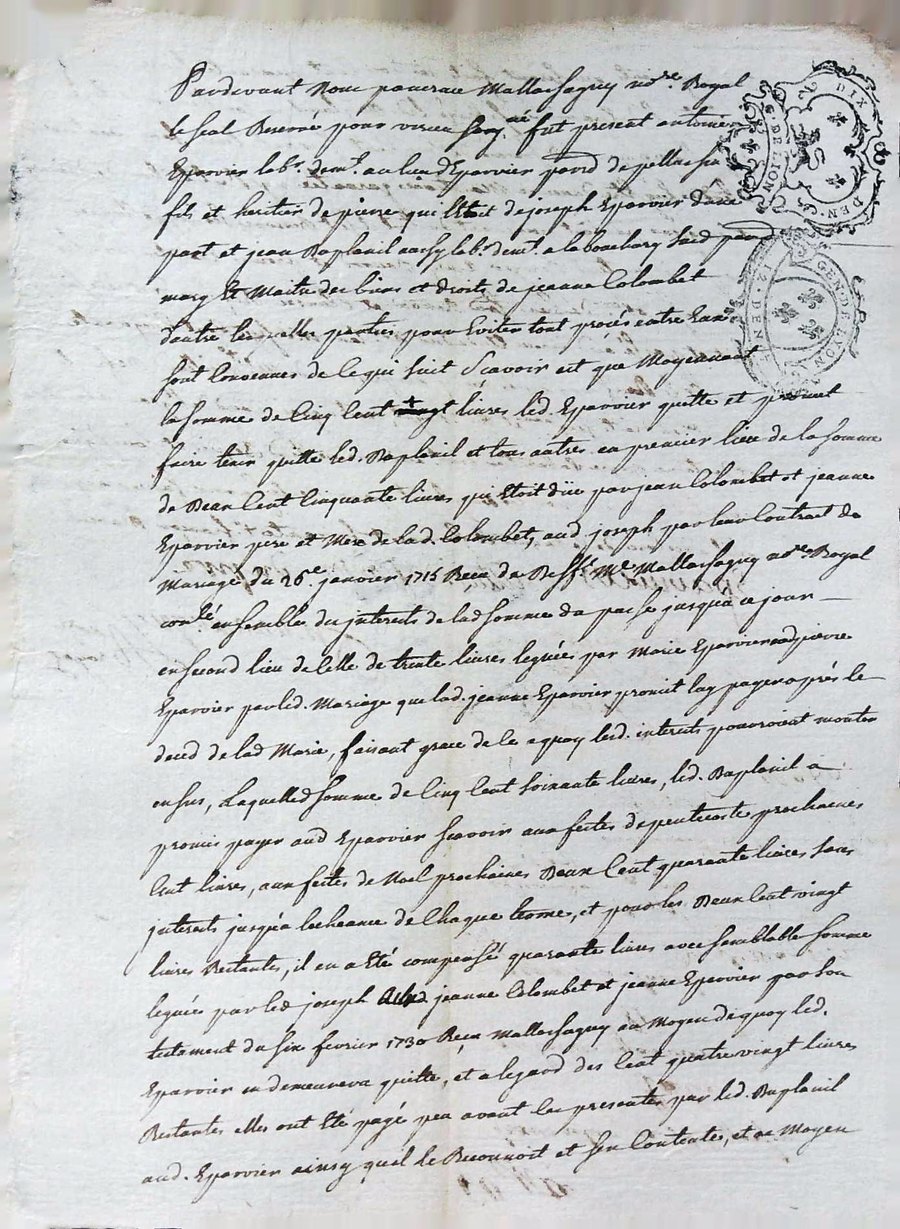 Pardevant Nous pancrace Mallassagny no.re Royal
le seal Reservé pour vicen Serg.ne fut present antoine
Eparvier lab.r dem.t au lieu d'Eparvier par.d de pellussin
fils et heritier de pierre qui Etoit de joseph Eparvier d'une
part et jean Raplanil aussy lab.r dem.t a la bouchary Sud. par.d
mary Et Maitre des biens et droits de jeanne Colombet
d'autre lesquelles parties pour Eviter tout procés entre Eux
sont Convenues de ce qui suit Scavoir est que Moyennant
la somme de Cinq Cent + vingt livres led. Eparvier quitte et promet
faire tenir quitte led. Raplanil et tous autres en premier lieu de la somme
de Deux Cent Cinquante livres qui Etoit düe par jean Colombet et jeanne
Eparvier pere et Mere de lad. Colombet, aud. joseph par leur Contract de
Mariage du 26.e janvier 1715 Recu de Deff.t M.e Mallassagny no.re Royal
con.lé ensembles du interets de lad somme du passe jusqua ce jour
en second lieu de Celle de trente livres leguées par Marie Eparvier aud pierre
Eparvier par led. Mariage que lad. jeanne Eparvier promit luy payer aprés le
deced de lad Marie, faisant grace de ce a quoy lesd. interets pourroient monter
en sus, Laquelle d somme de Cinq Cent soixante livres, led. Raplanil a
promis payer aud Eparvier Scavoir aux festes de pentecoste prochaines
Cent livres, aux festes de Noel prochaines Deux Cent quarante livres sans
jnterets jusqu'a lecheance de Chaque terme, et pour les Deux Cent vingt
livres Restantes, il en a Eté compensé quarante livres avec semblable somme
leguée par led joseph jeanne Colombet et jeanne Eparvier par son
testament du six fevrier 1730 Reçu Mallassagny au Moyen de quoy led.
Eparvier en demeurera quitte, et a legard des Cent quatre vingt livres
Restantes elles ont Eté payé peu avant les presentes par led. Raplanil
aud. Eparvier ainsy quil le Reconnoit et sen Contente, et au Moyen
DIX DEN.
G. DE LION
GEN. DE LYON
12. DEN